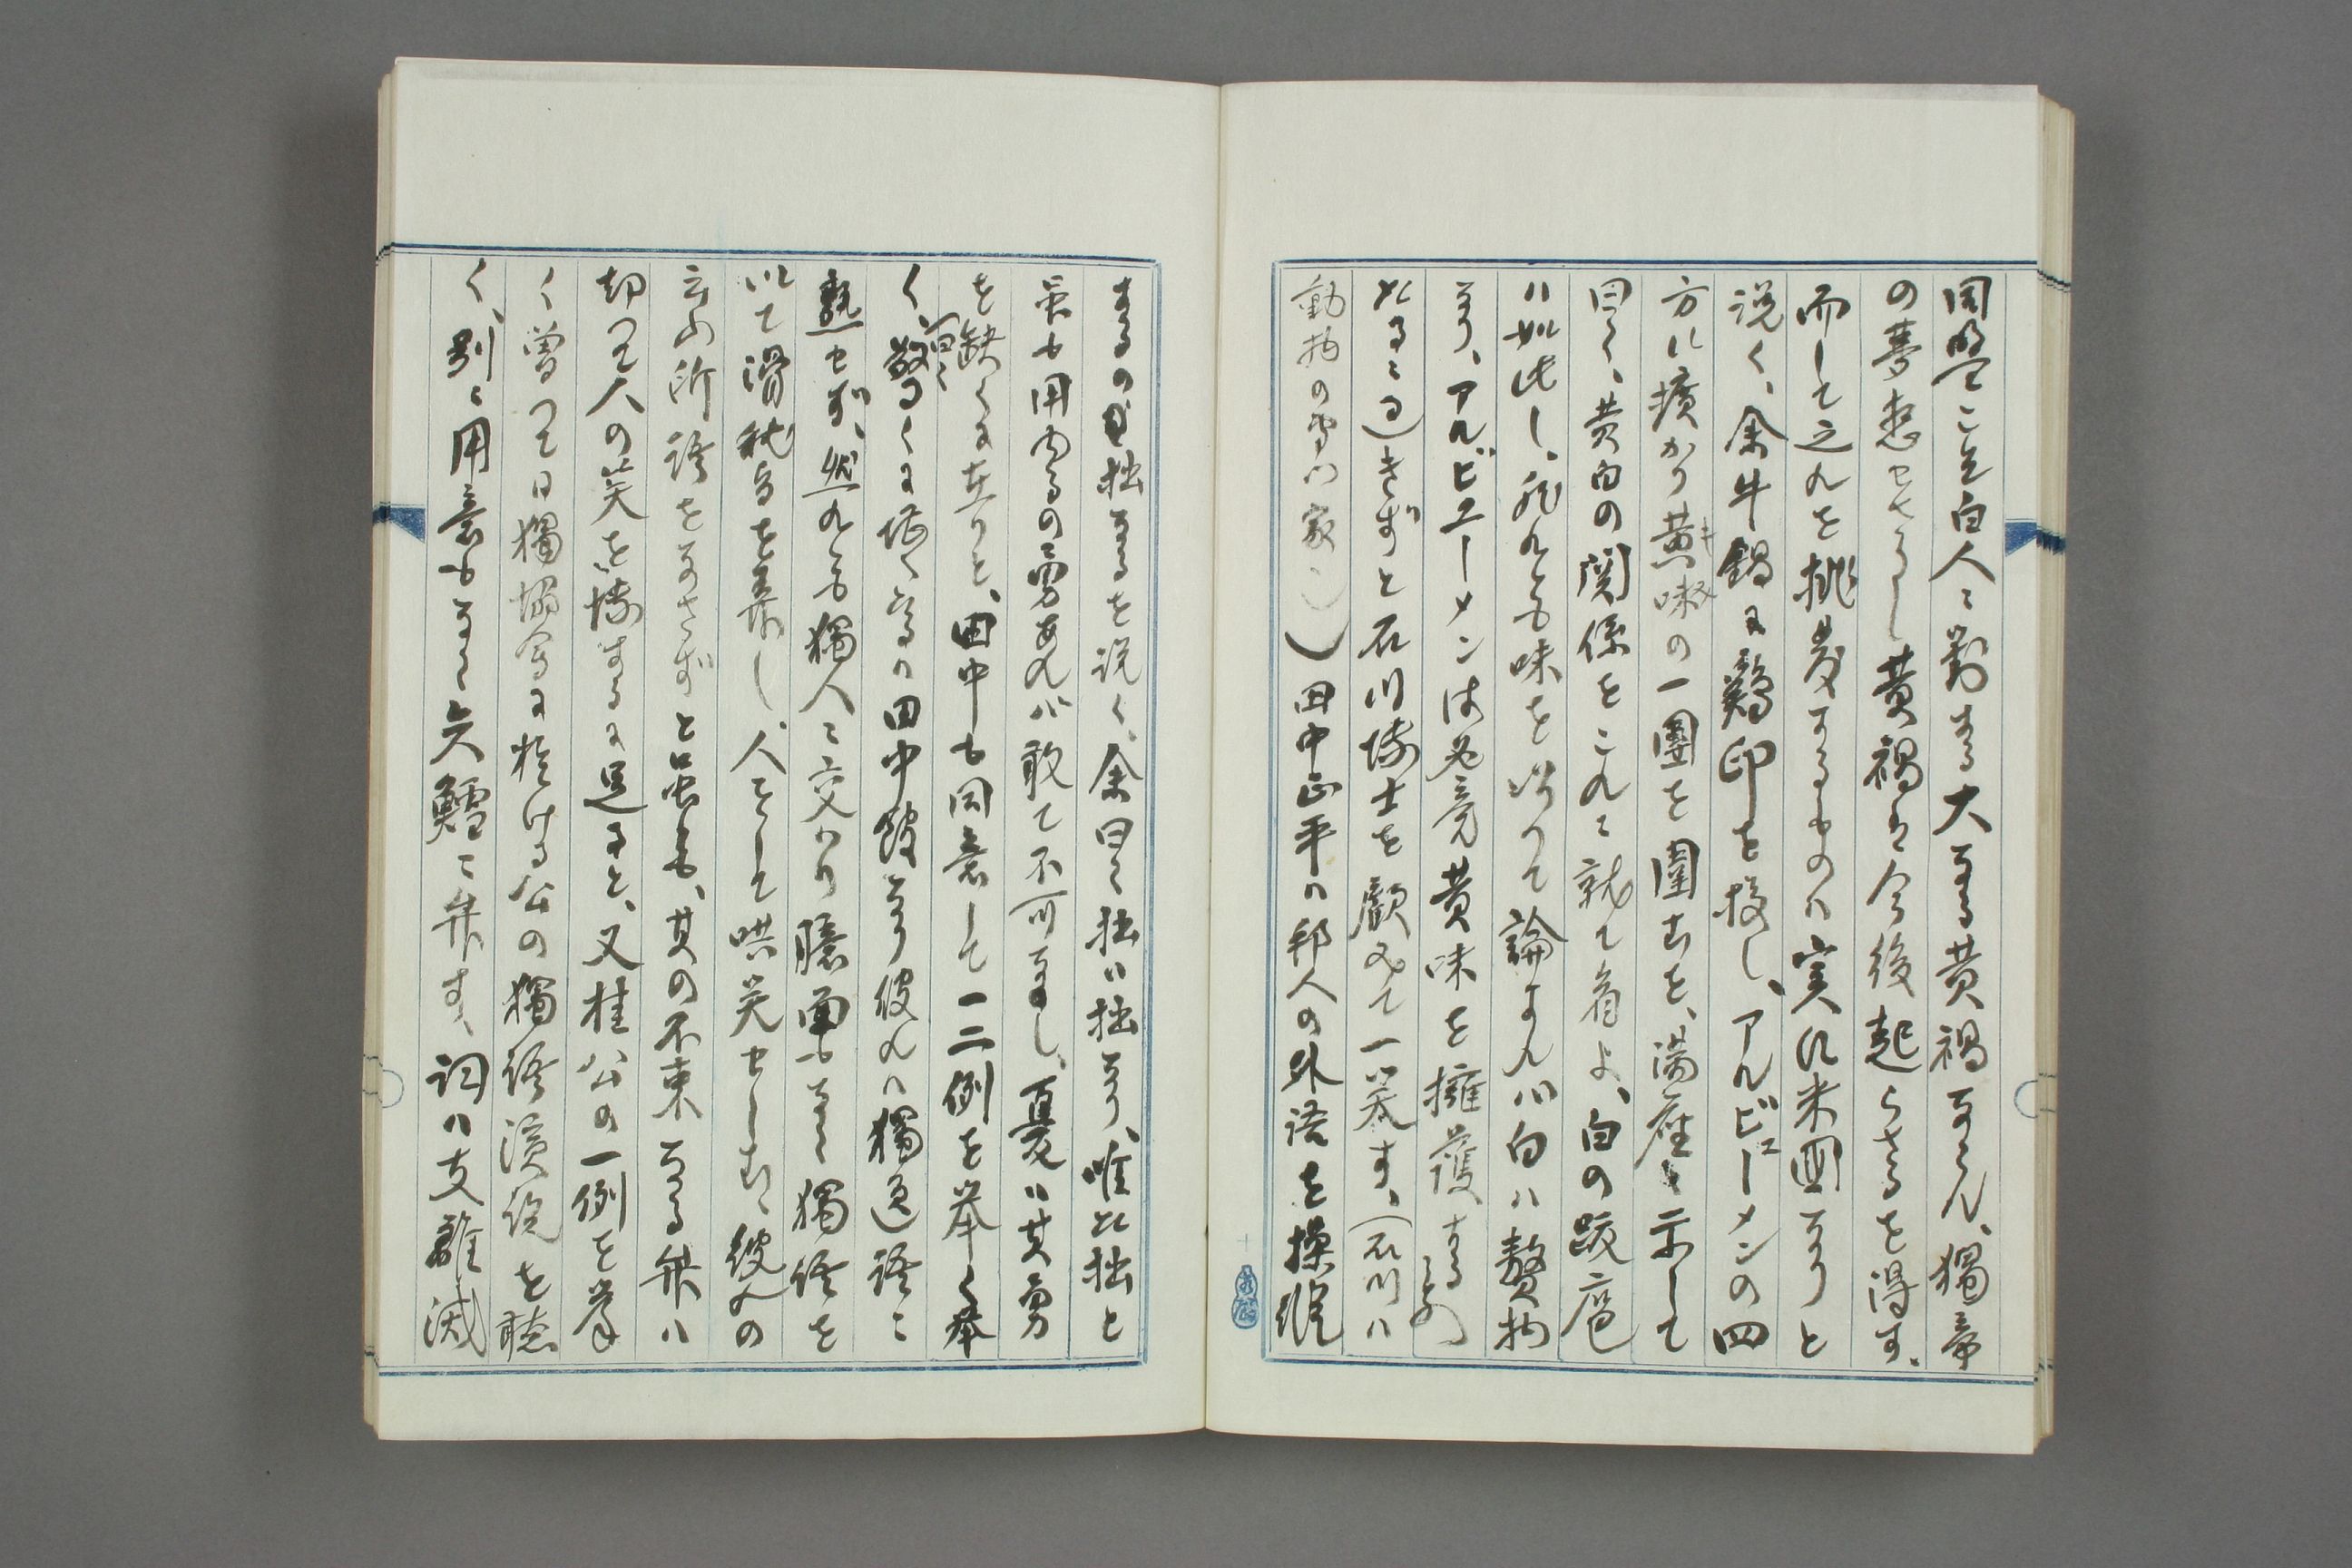 同盟こそ白人ニ對する大なる黄禍ならん、獨帝
の夢想せさるし黄禍は今後起らさるを得す、
而して之れを挑発するものハ実に米国なりと
説く、余牛鍋に鶏卵を投し、アルビユーメンの四
方に擴かり黄味の一團を圍むを、満座に示して
曰く、黄白の関係をこれに就て看よ、白の跋扈
ハ如此し、然れとも味を以つて論すれハ白ハ贅物
なり、アルビユーメンは必竟黄味を擁護するもの
たるに過きずと石川博士を顧みて一笑す、(石川ハ
動物の専門家)田中正平ハ邦人の外語を操縦
するの拙なるを説く、余曰く拙ハ拙なり、唯此拙と
雖も用ゐるの勇あれハ敢て不可なし、憂ハ其勇
を缺くに在りと、田中も同意して一二例を挙く挙
く、(曰く)驚くに堪へたるハ田中館なり彼れハ獨逸語に
熟せず、然れとも獨人ニ交ハり臆面もなく獨語を
以て滑稽を弄し、人をして哄笑せしむ、彼れの
云ふ所語をなさずと雖も、其の不束なる弁ハ
却つて人の笑を博するに足ると、又桂公の一例を挙
く曽つて日獨協会に於ける公の獨語演説を聴
く、別に用意もなく矢鱈に弁す、詞ハ支離滅